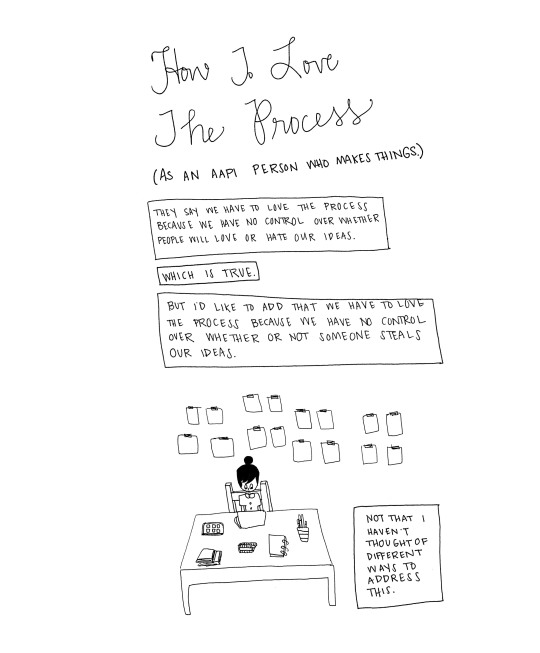 How To Love
The Process
(AS AN AAPI PERSON WHO MAKES THINGS.)
THEY SAY WE HAVE TO LOVE THE PROCESS
BECAUSE WE HAVE NO CONTROL OVER WHETHER
PEOPLE WILL LOVE OR HATE OUR IDEAS.
WHICH IS TRUE.
BUT I'D LIKE TO ADD THAT WE HAVE TO LOVE
THE PROCESS BECAUSE WE HAVE NO CONTROL
OVER WHETHER OR NOT SOMEONE STEALS
OUR IDEAS.
NOT THAT I
HAVEN'T
THOUGHT OF
DIFFERENT
WAYS TO
ADDRESS
THIS.